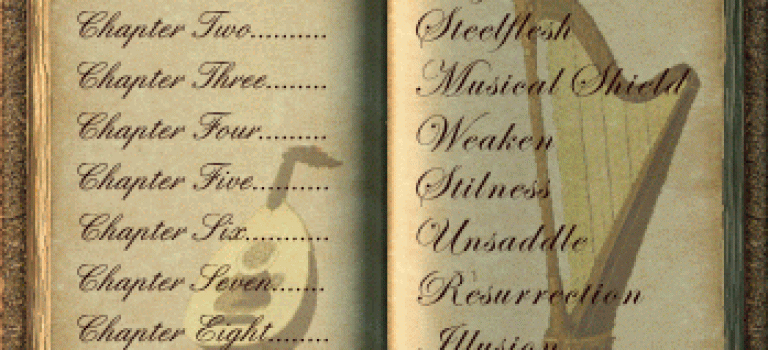 Chapter Two.......... Steelflesh
Chapter Three........ Musical Shield
Chapter Four......... Weaken
Chapter Five.......... Stilness
Chapter Six........... Unsaddle
Chapter Seven....... Resurrection
Chapter Eight........ Illusion